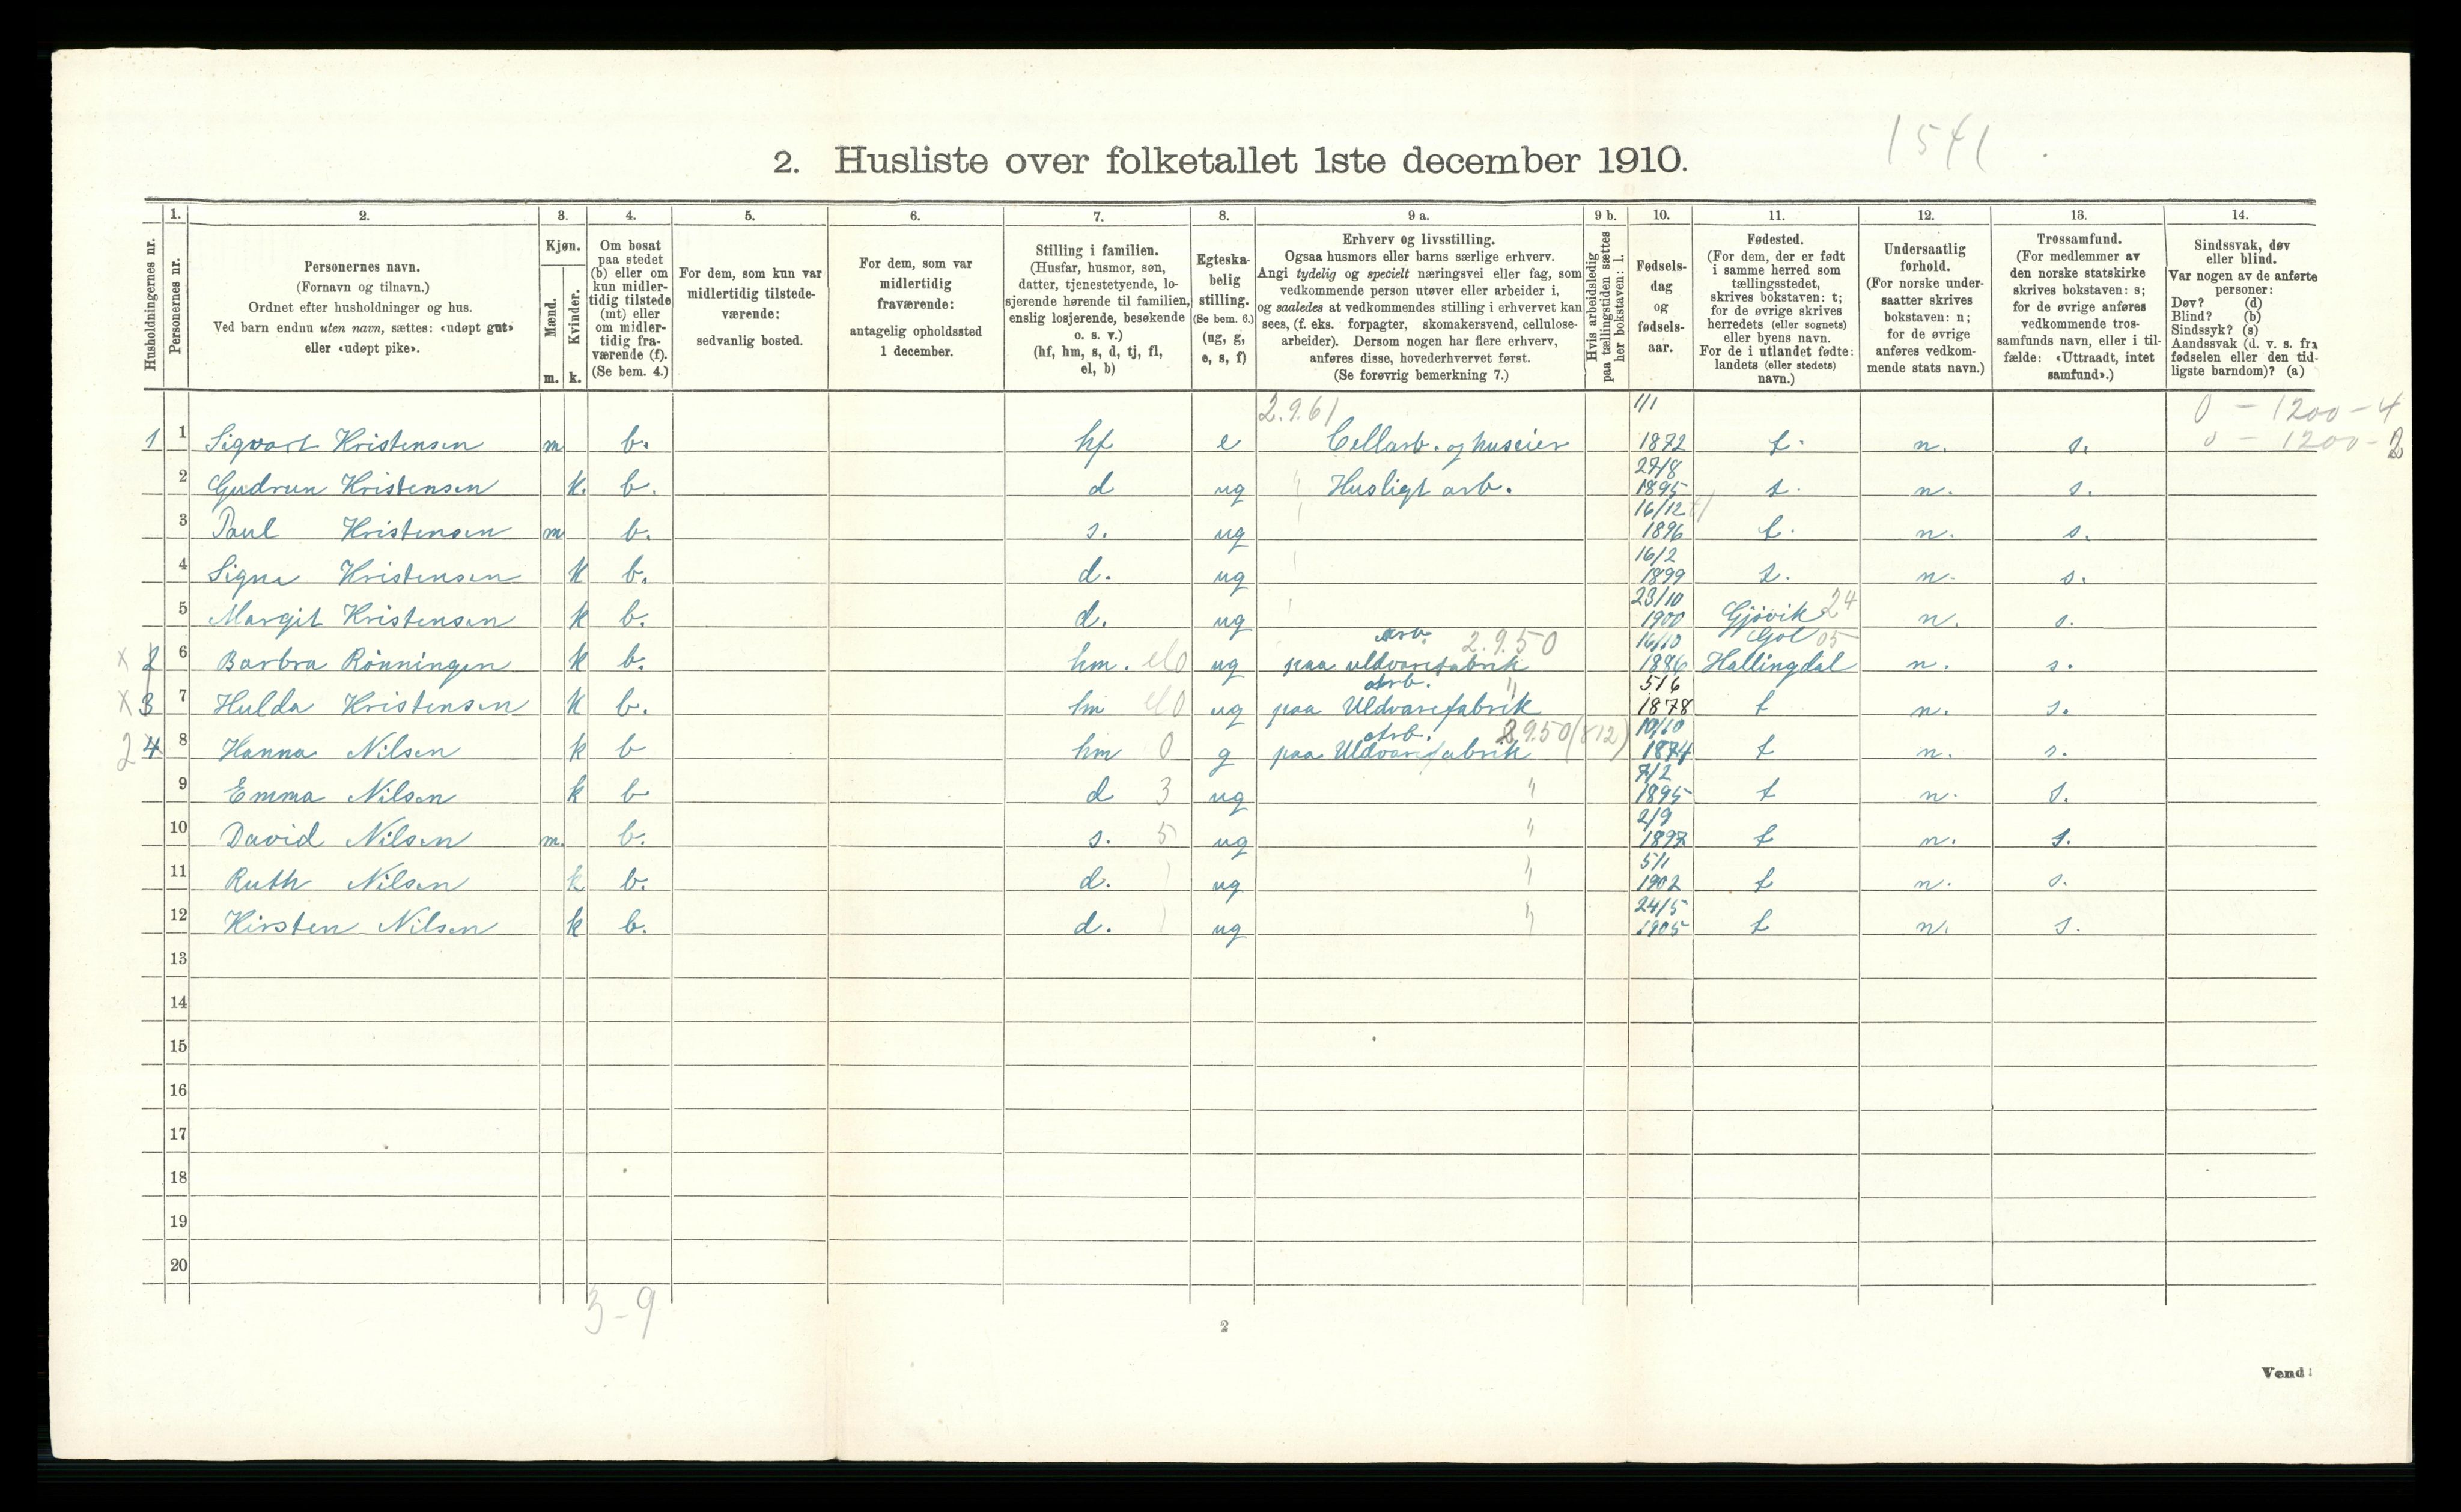 1541
2. Husliste over folketallet 1ste december 1910.
Husholdningernes nr.
1. Personernes nr.
2. Personernes navn.
(Fornavn og tilnavn.)
Ordnet efter husholdninger og hus.
Ved barn endnu uten navn, sættes: «udøpt gut»
eller «udøpt pike».
3. Kjøn.
Mænd. m.
Kvinder. k.
4. Om bosat
paa stedet
(b) eller om
kun midler-
tidig tilstede
(mt) eller
om midler-
tidig fra-
værende (f).
(Se bem. 4.)
5. For dem, som kun var
midlertidig tilstede-
værende:
sedvanlig bosted.
6. For dem, som var
midlertidig
fraværende:
antagelig opholdssted
1 december.
7. Stilling i familien.
(Husfar, husmor, søn,
datter, tjenestetyende, lo-
sjerende hørende til familien,
enslig losjerende, besøkende
o. s. v.)
(hf, hm, s, d, tj, fl,
el, b)
8. Egteska-
belig
stilling.
(Se bem. 6.)
(ug, g,
e, s, f)
9 a. Erhverv og livsstilling.
Ogsaa husmors eller barns særlige erhverv.
Angi tydelig og specielt næringsvei eller fag, som
vedkommende person utøver eller arbeider i,
og saaledes at vedkommendes stilling i erhvervet kan
sees, (f. eks. forpagter, skomakersvend, cellulose-
arbeider). Dersom nogen har flere erhverv,
anføres disse, hovederhvervet først.
(Se forøvrig bemerkning 7.)
9 b. Hvis arbeidsledig
paa tællingstiden sættes
her bokstaven: l.
10. Fødsels-
dag
og
fødsels-
aar.
11. Fødested.
(For dem, der er født
i samme herred som
tællingsstedet,
skrives bokstaven: t;
for de øvrige skrives
herredets (eller sognets)
eller byens navn.
For de i utlandet fødte:
landets (eller stedets)
navn.)
12. Undersaatlig
forhold.
(For norske under-
saatter skrives
bokstaven: n;
for de øvrige
anføres vedkom-
mende stats navn.)
13. Trossamfund.
(For medlemmer av
den norske statskirke
skrives bokstaven: s;
for de øvrige anføres
vedkommende tros-
samfunds navn, eller i til-
fælde: «Uttraadt, intet
samfund».)
14. Sindssvak, døv
eller blind.
Var nogen av de anførte
personer:
Døv? (d)
Blind? (b)
Sindssyk? (s)
Aandssvak (d. v. s. fra
fødselen eller den tid-
ligste barndom)? (a)
2.9.61 1/1 0 - 1200 - 4
1 1 Sigvart Kristensen m b. hf e Cellarb. og huseier 1872 t. n. s. 0 - 1200 - 2
27/8
2 Gudrun Kristensen k. b. d ug Husligt arb. 1895 t. n. s.
16/12
3 Paul Kristensen m b. s. ug 1896 t. n. s.
16/2
4 Signe Kristensen k b. d. ug 1899 t. n. s.
23/10
5 Margit Kristensen k b. d. ug 1900 Gjövik 24 n. s.
Arb. 2.9.50 16/10 Gol 05
x 2 6 Barbra Rönningen k b. hm. el 0 ug paa uldvarefabrik 1886 Hallingdal n. s.
Arb. " 5/6
x 3 7 Hulda Kristensen k b. hm el 0 ug paa Uldvarefabrik 1878 t n. s.
Arb. 2.9.50 (812) 10/10
2 4 8 Hanna Nilsen k b hm 0 g paa Uldvarefabrik 1874 t n. s.
7/2
9 Emma Nilsen k b d 3 ug " 1895 t n. s.
2/9
10 David Nilsen m. b. s. 5 ug " 1897 t n. s.
5/1
11 Ruth Nilsen k b. d. ug " 1902 t n. s.
24/5
12 Kirsten Nilsen k b. d. ug " 1905 t n. s.
13
14
15
16
17
18
19
20
3-9
2
Vend!